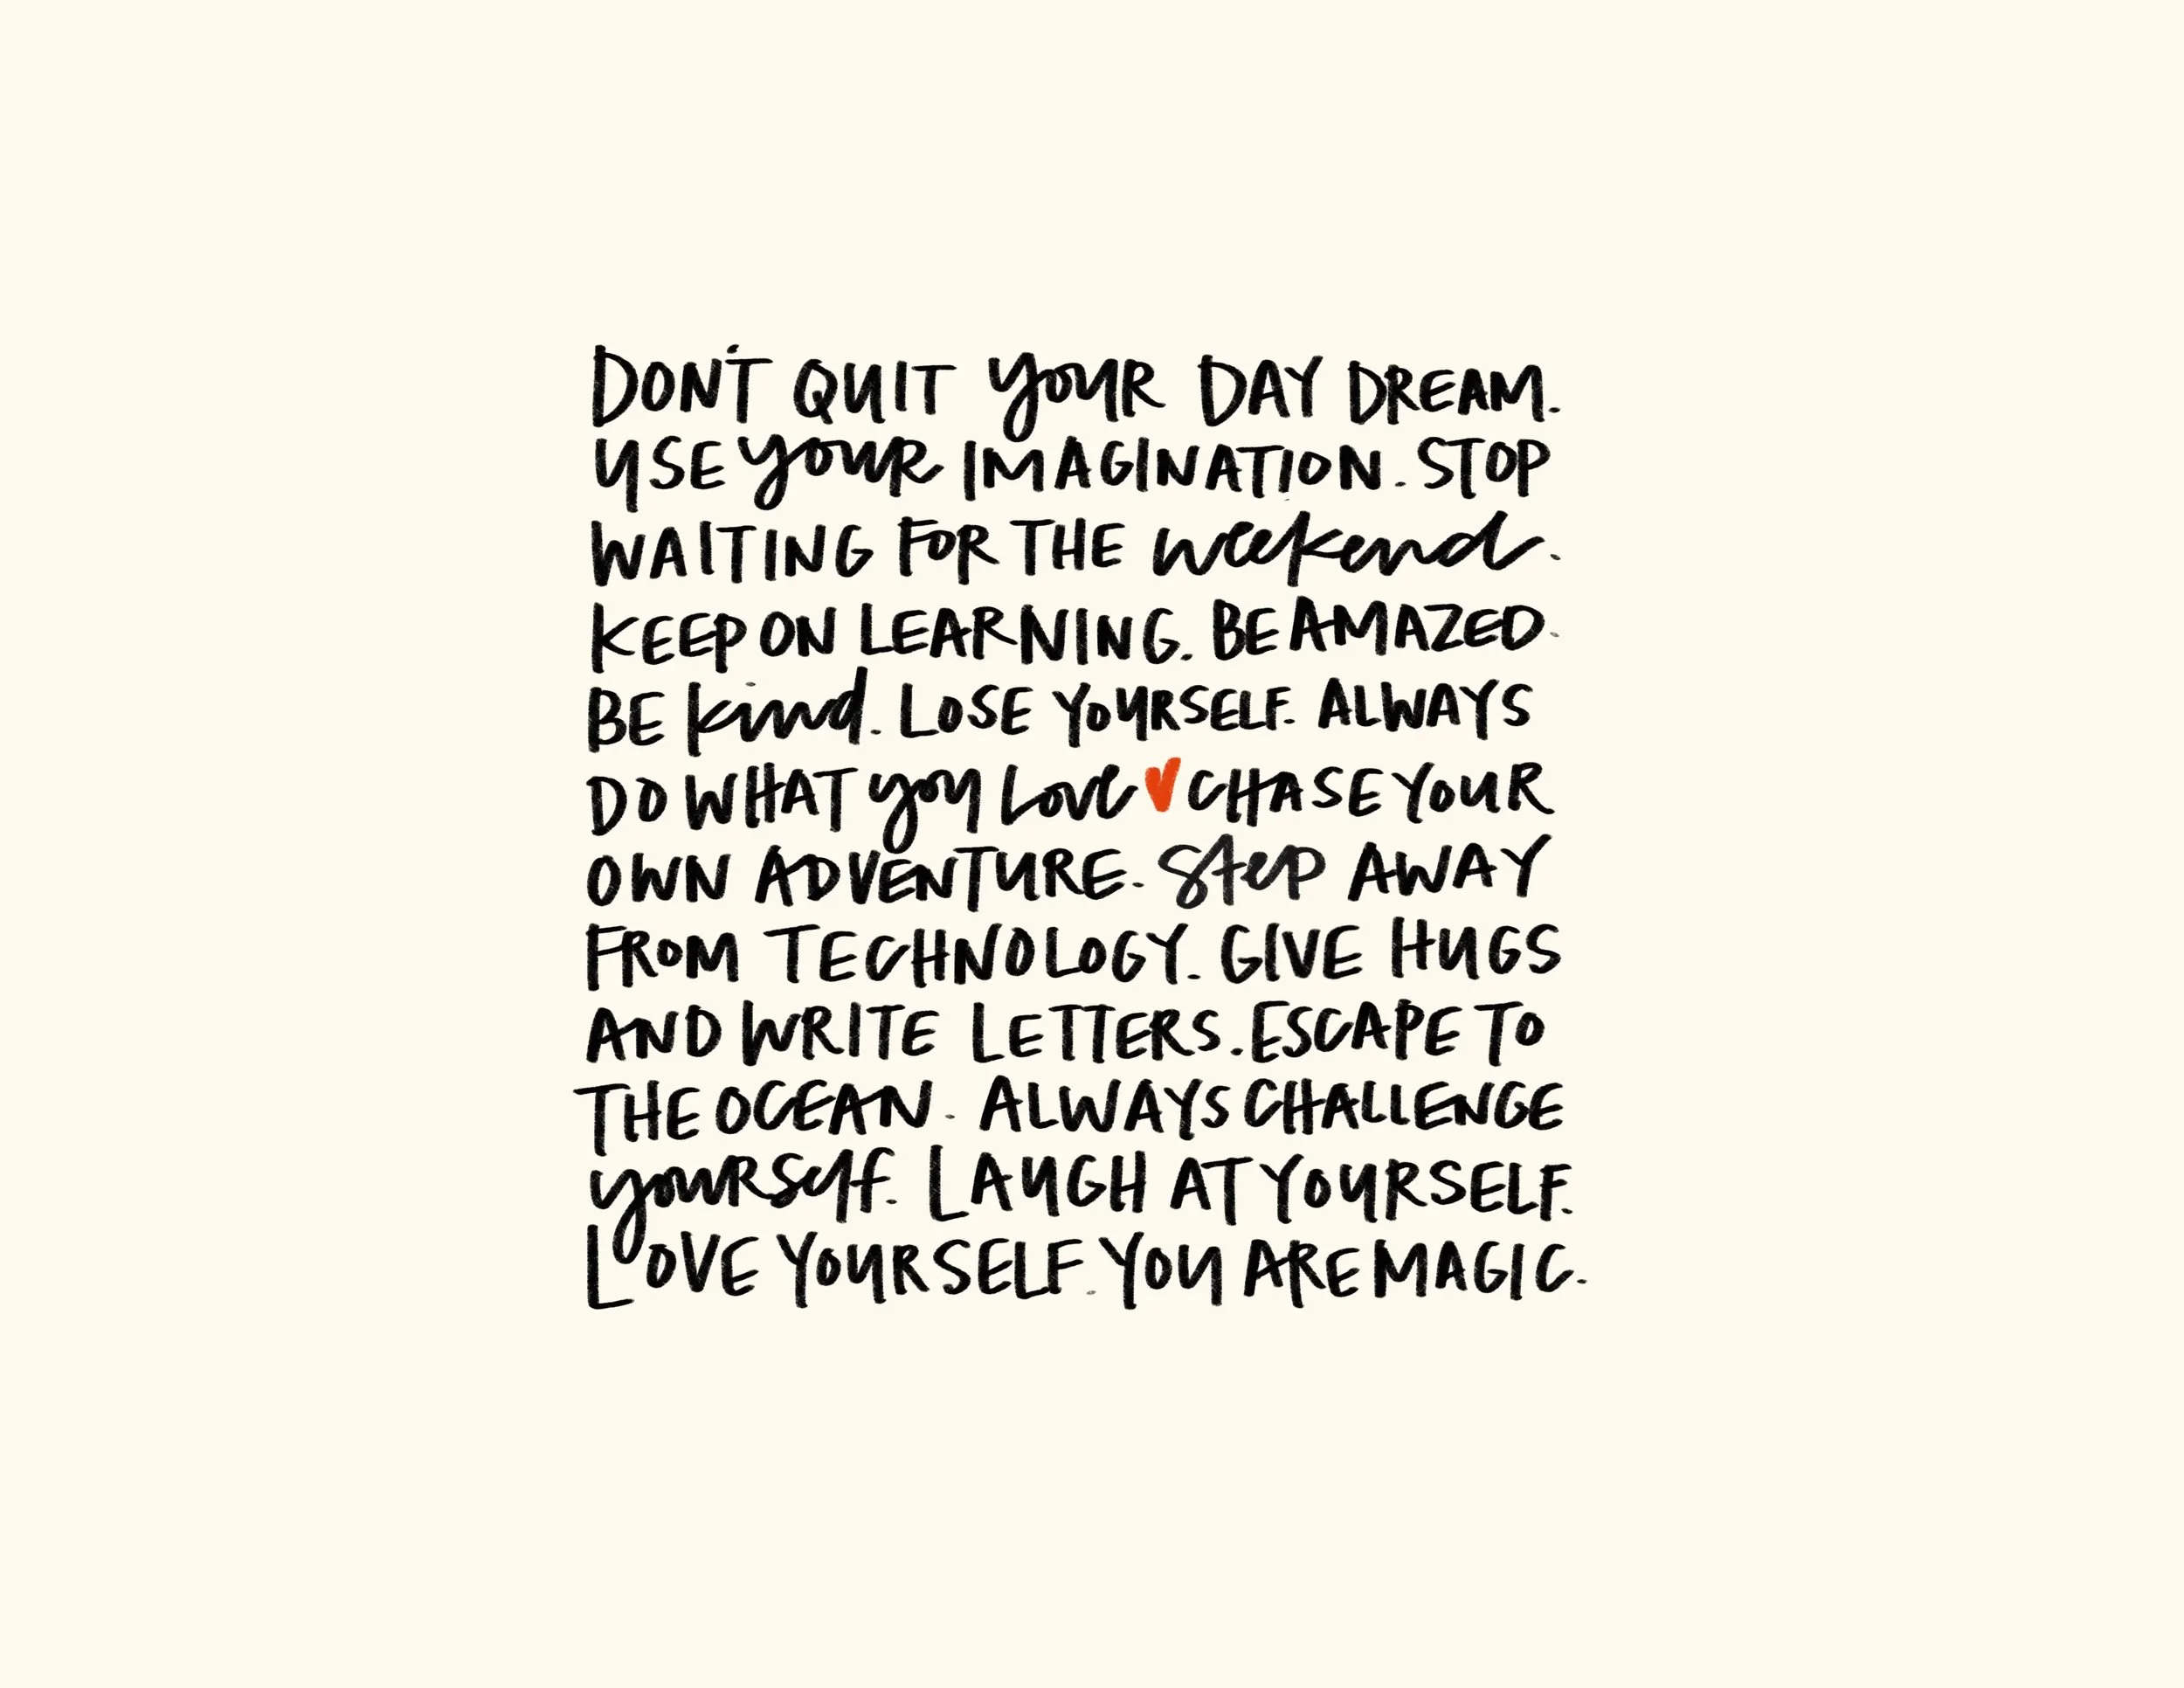 DON'T QUIT yOUR DAY DREAM.
USE yOUR IMAGINATION. STOP
WAITING FOR THE weekend.
KEEP ON LEARNING. BE AMAZED.
BE kind. LOSE YOURSELF. ALWAYS
DO WHAT you Love ♥ CHASE YOUR
OWN ADVENTURE. Step AWAY
FROM TECHNOLOGY. GIVE HUGS
AND WRITE LETTERS. ESCAPE TO
THE OCEAN. ALWAYS CHALLENGE
youRSelf. LAUGH AT YOURSELF.
LOVE YOURSELF. YOU ARE MAGIC.